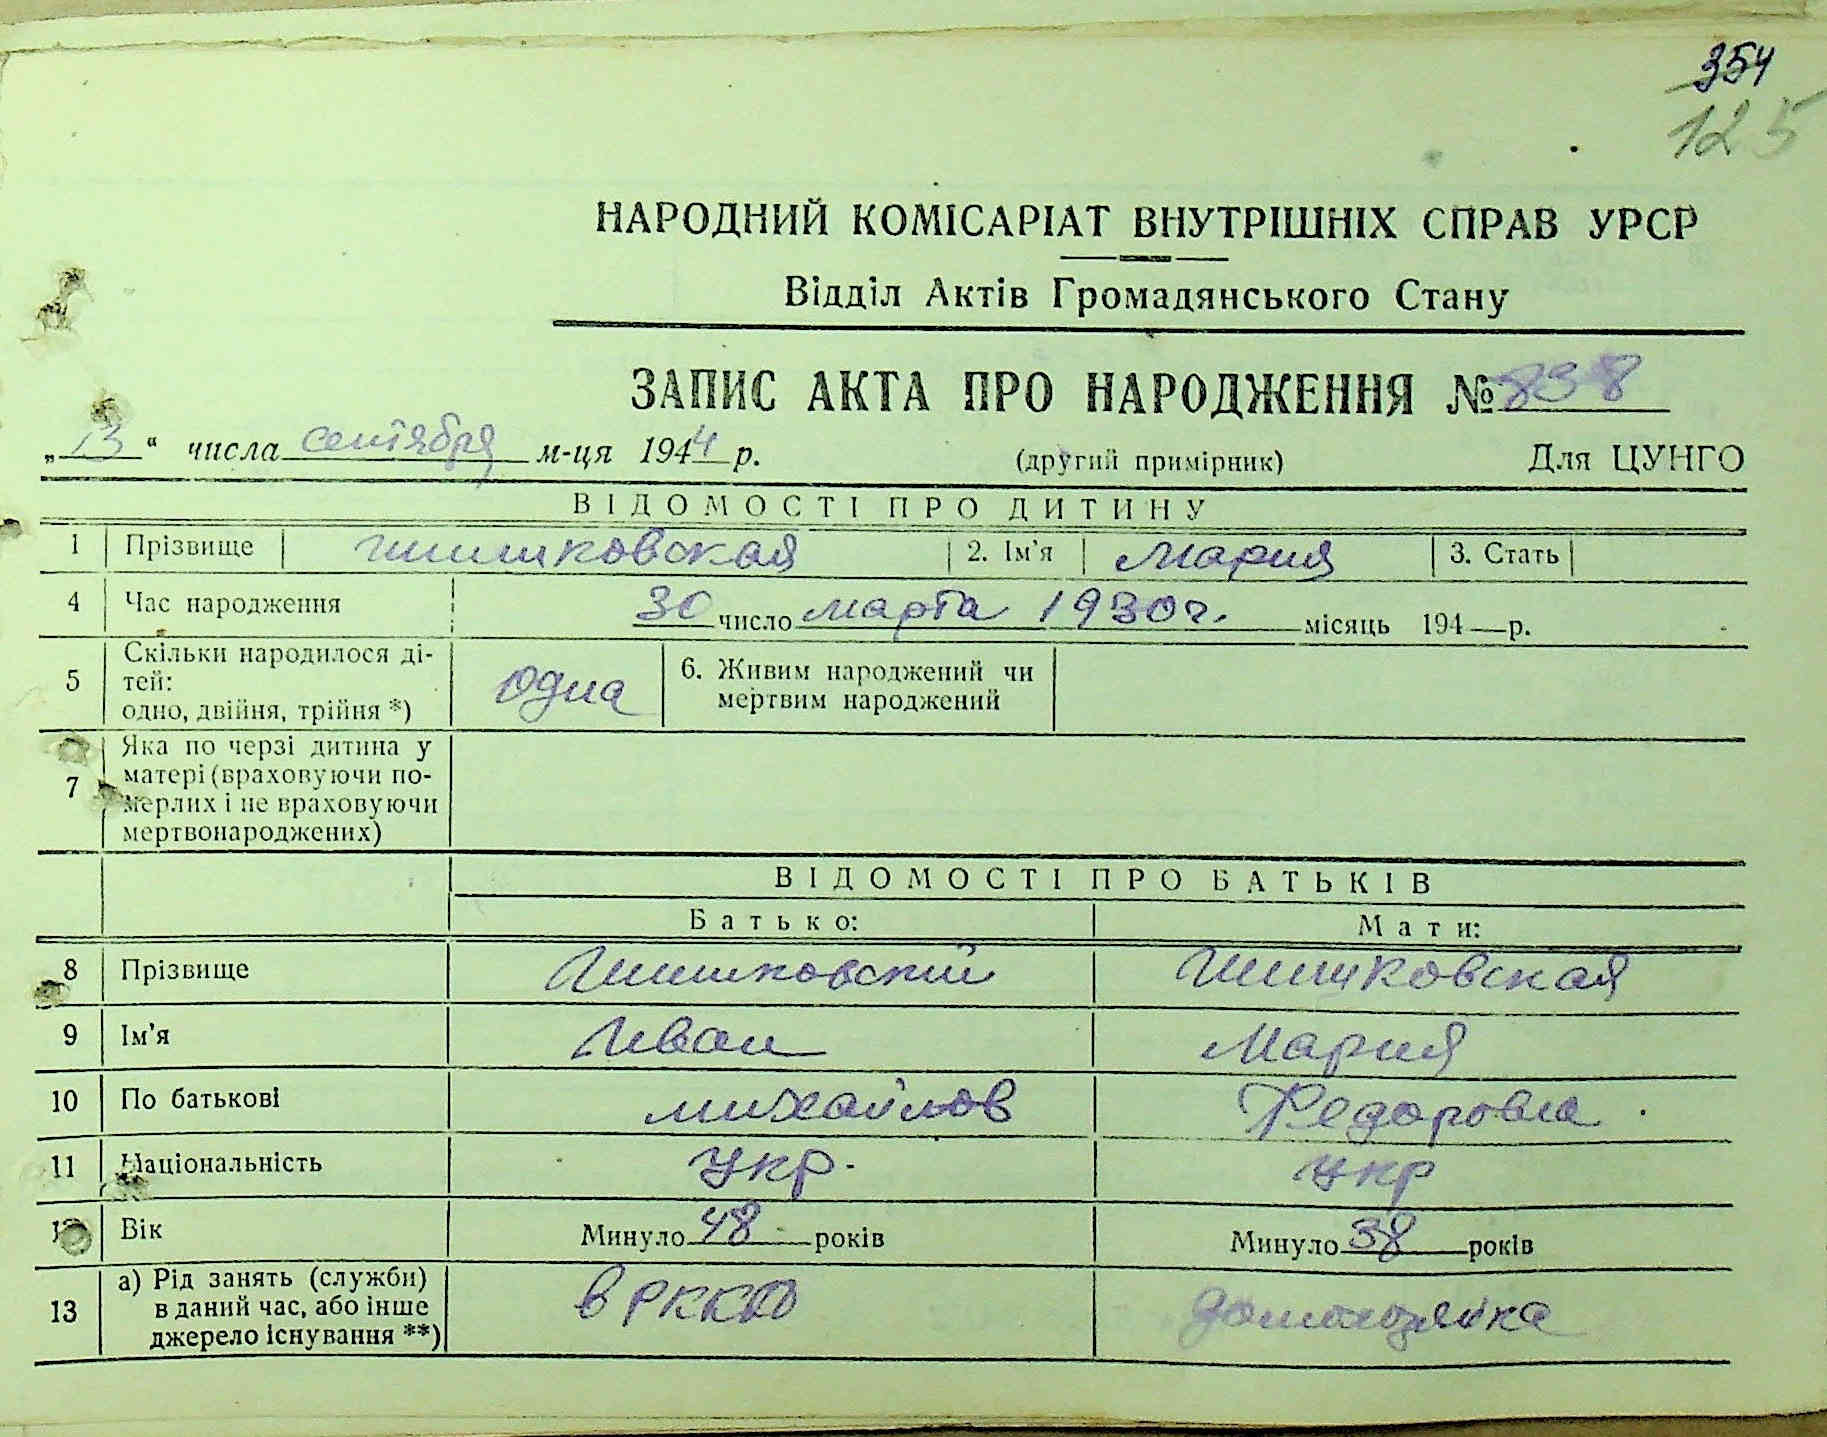 354
125
НАРОДНИЙ КОМІСАРІАТ ВНУТРІШНІХ СПРАВ УРСР
Відділ Актів Громадянського Стану
ЗАПИС АКТА ПРО НАРОДЖЕННЯ № 838
„13“ числа сентября м-ця 1944 р. (другий примірник) Для ЦУНГО
ВІДОМОСТІ ПРО ДИТИНУ
1 Прізвище Шишковская 2. Ім'я Мария 3. Стать
4 Час народження 30 число марта 1930 г. місяць 194—р.
5 Скільки народилося ді-
тей:
одно, двійня, трійня *) одна 6. Живим народжений чи
мертвим народжений
7 Яка по черзі дитина у
матері (враховуючи по-
мерлих і не враховуючи
мертвонароджених)
ВІДОМОСТІ ПРО БАТЬКІВ
Батько: Мати:
8 Прізвище Шишковский Шишковская
9 Ім'я Иван Мария
10 По батькові Михайлов Федоровна
11 Національність Укр. Укр
12 Вік Минуло 48 років Минуло 38 років
13 а) Рід занять (служби)
в даний час, або інше
джерело існування **) в РККА домохозяйка